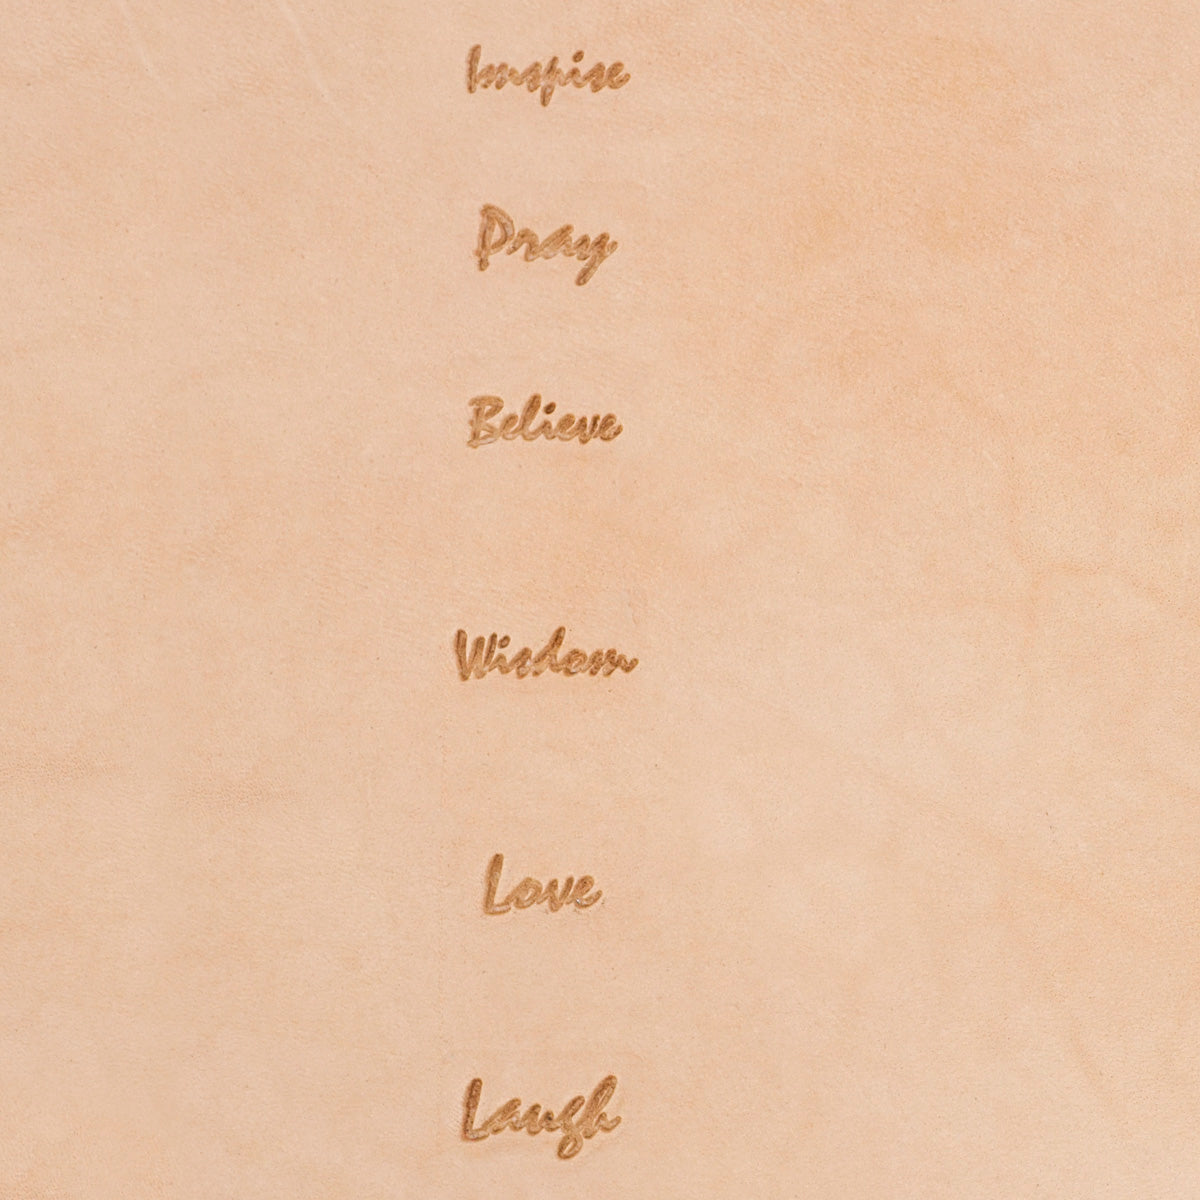 Inspire
Pray
Believe
Wisdom
Love
Laugh